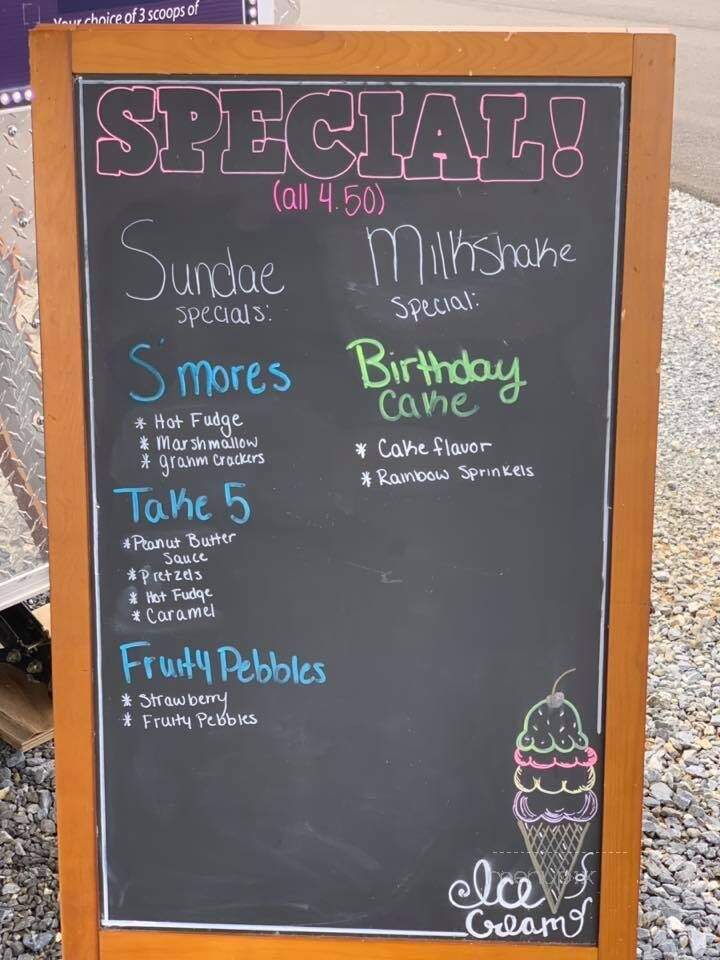 Your choice of 3 scoops of
SPECIAL!
(all 4.50)
Sundae
specials:
S'mores
* Hot Fudge
* Marshmallow
* grahm Crackers
Take 5
* Peanut Butter
Sauce
* Pretzels
* Hot Fudge
* Caramel
Fruity Pebbles
* Strawberry
* Fruity Pebbles
Milkshake
Special:
Birthday
Cake
* Cake flavor
* Rainbow Sprinkels
Ice
Cream